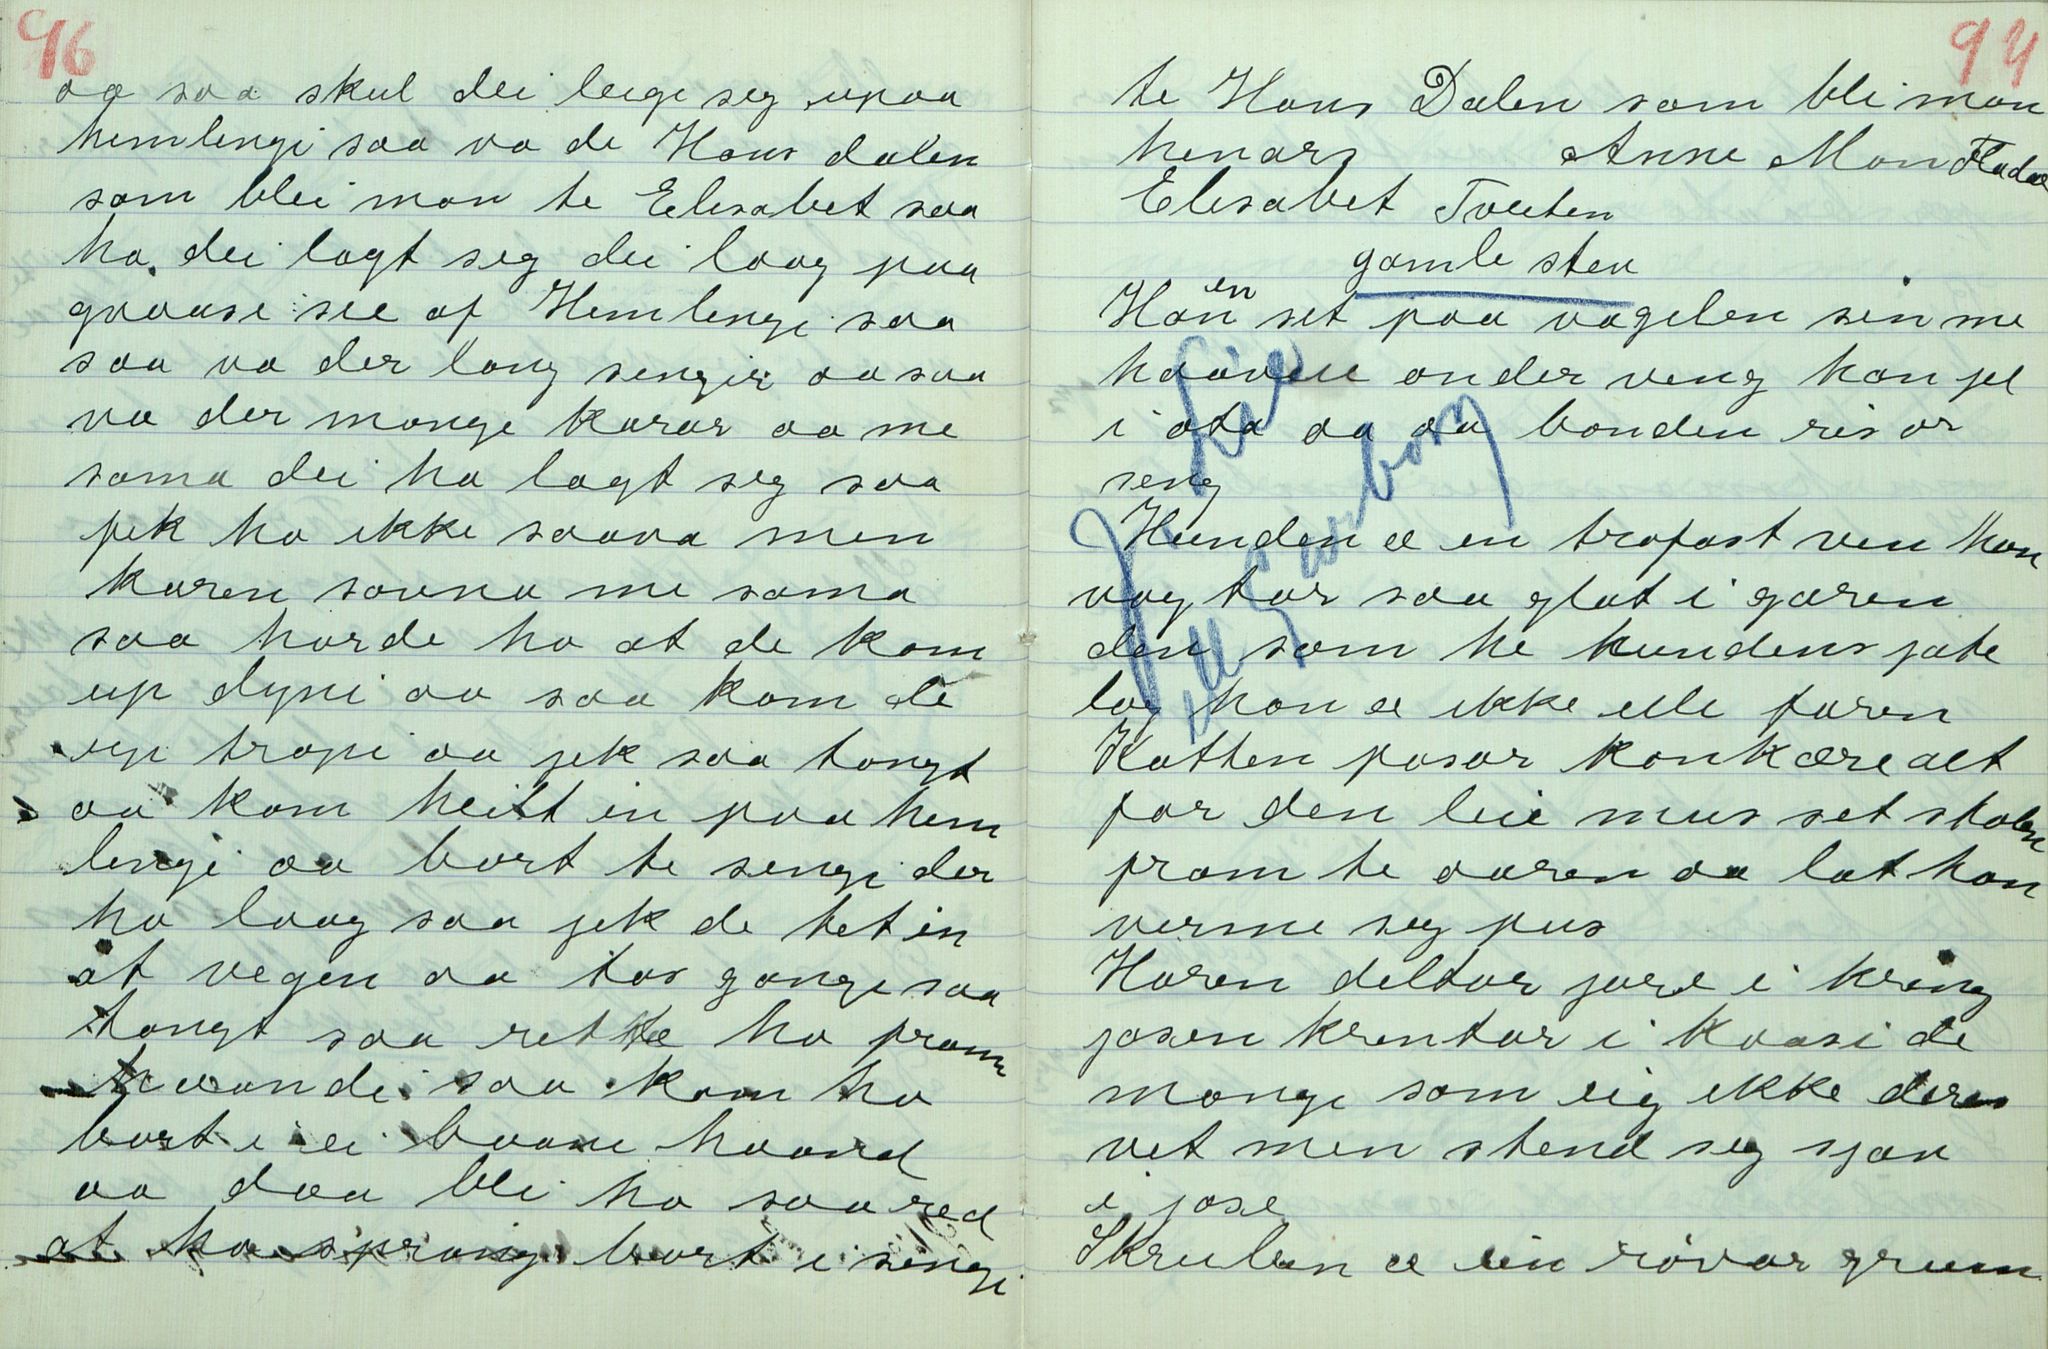 96
aa saa skul dei leige seg upaa
hemlengi saa va de Hans dalen
som blei man te Elisabet saa
ha dei lagt seg dei laag paa
graase see af Hemlengi saa
saa va der lang sengir aa saa
va der mange karar aa me
sama dei ha lagt seg saa
fek ho ikke saava men
karen sovna me sama
saa horde ho at de kom
up dyni aa saa kom de
up trapi aa jek saa tongt
aa kom heilt in paa hem
lengi aa bort te sengi der
ho laag saa jek de tet in
at vegen aa tas gange saa
tongt saa rette ho fram
haandi saa kom ho
bort i ei baane haand
aa daa bli ho saa red
at ho sprang bort i sengi
94
te Hans Dalen som bli man
henars Anne Mon Fladae
Elisabet Tveiten
gamle stev
Hanen set paa vagelen sin me
haavue onder veng han jel
i ota aa aa bonden ris or
seng
Hunden æ en trofast ven han
vagtar saa glat i garen
den som he hundens jate
lag han æ ikke ille faren
Katten pasar kankære alt
for den leie mus set stolen
fram te aaren aa lat han
verme seg pus
Haren deltar jare i kring
josen krentar i kaasi de
mange som eig ikke deres
vet men stend seg sjav
i jose
Skrulen æ ein røvar grum
J. Lie
ell Garborg